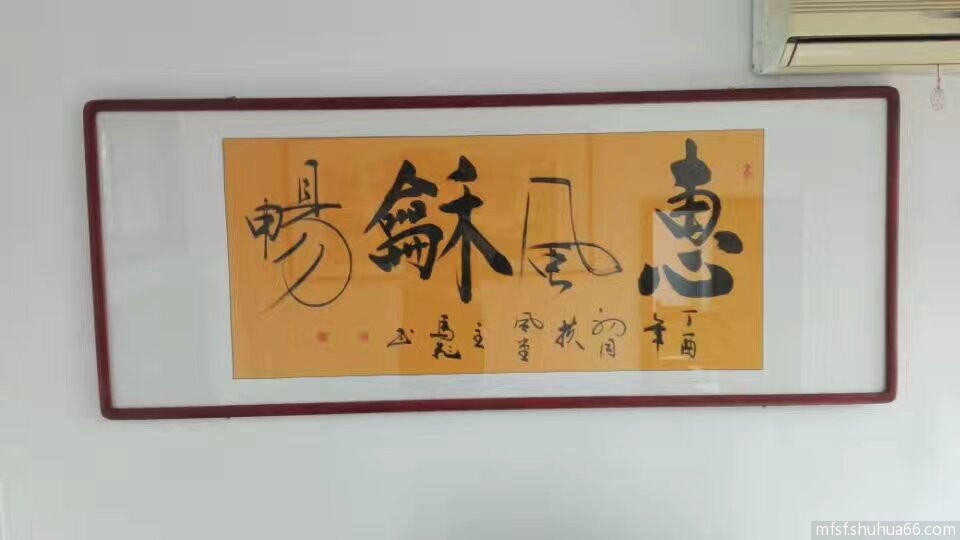 惠風龢暢
丁酉年
初月
扶
風堂
主
馬飛
書
mfsf.shuhua66.com